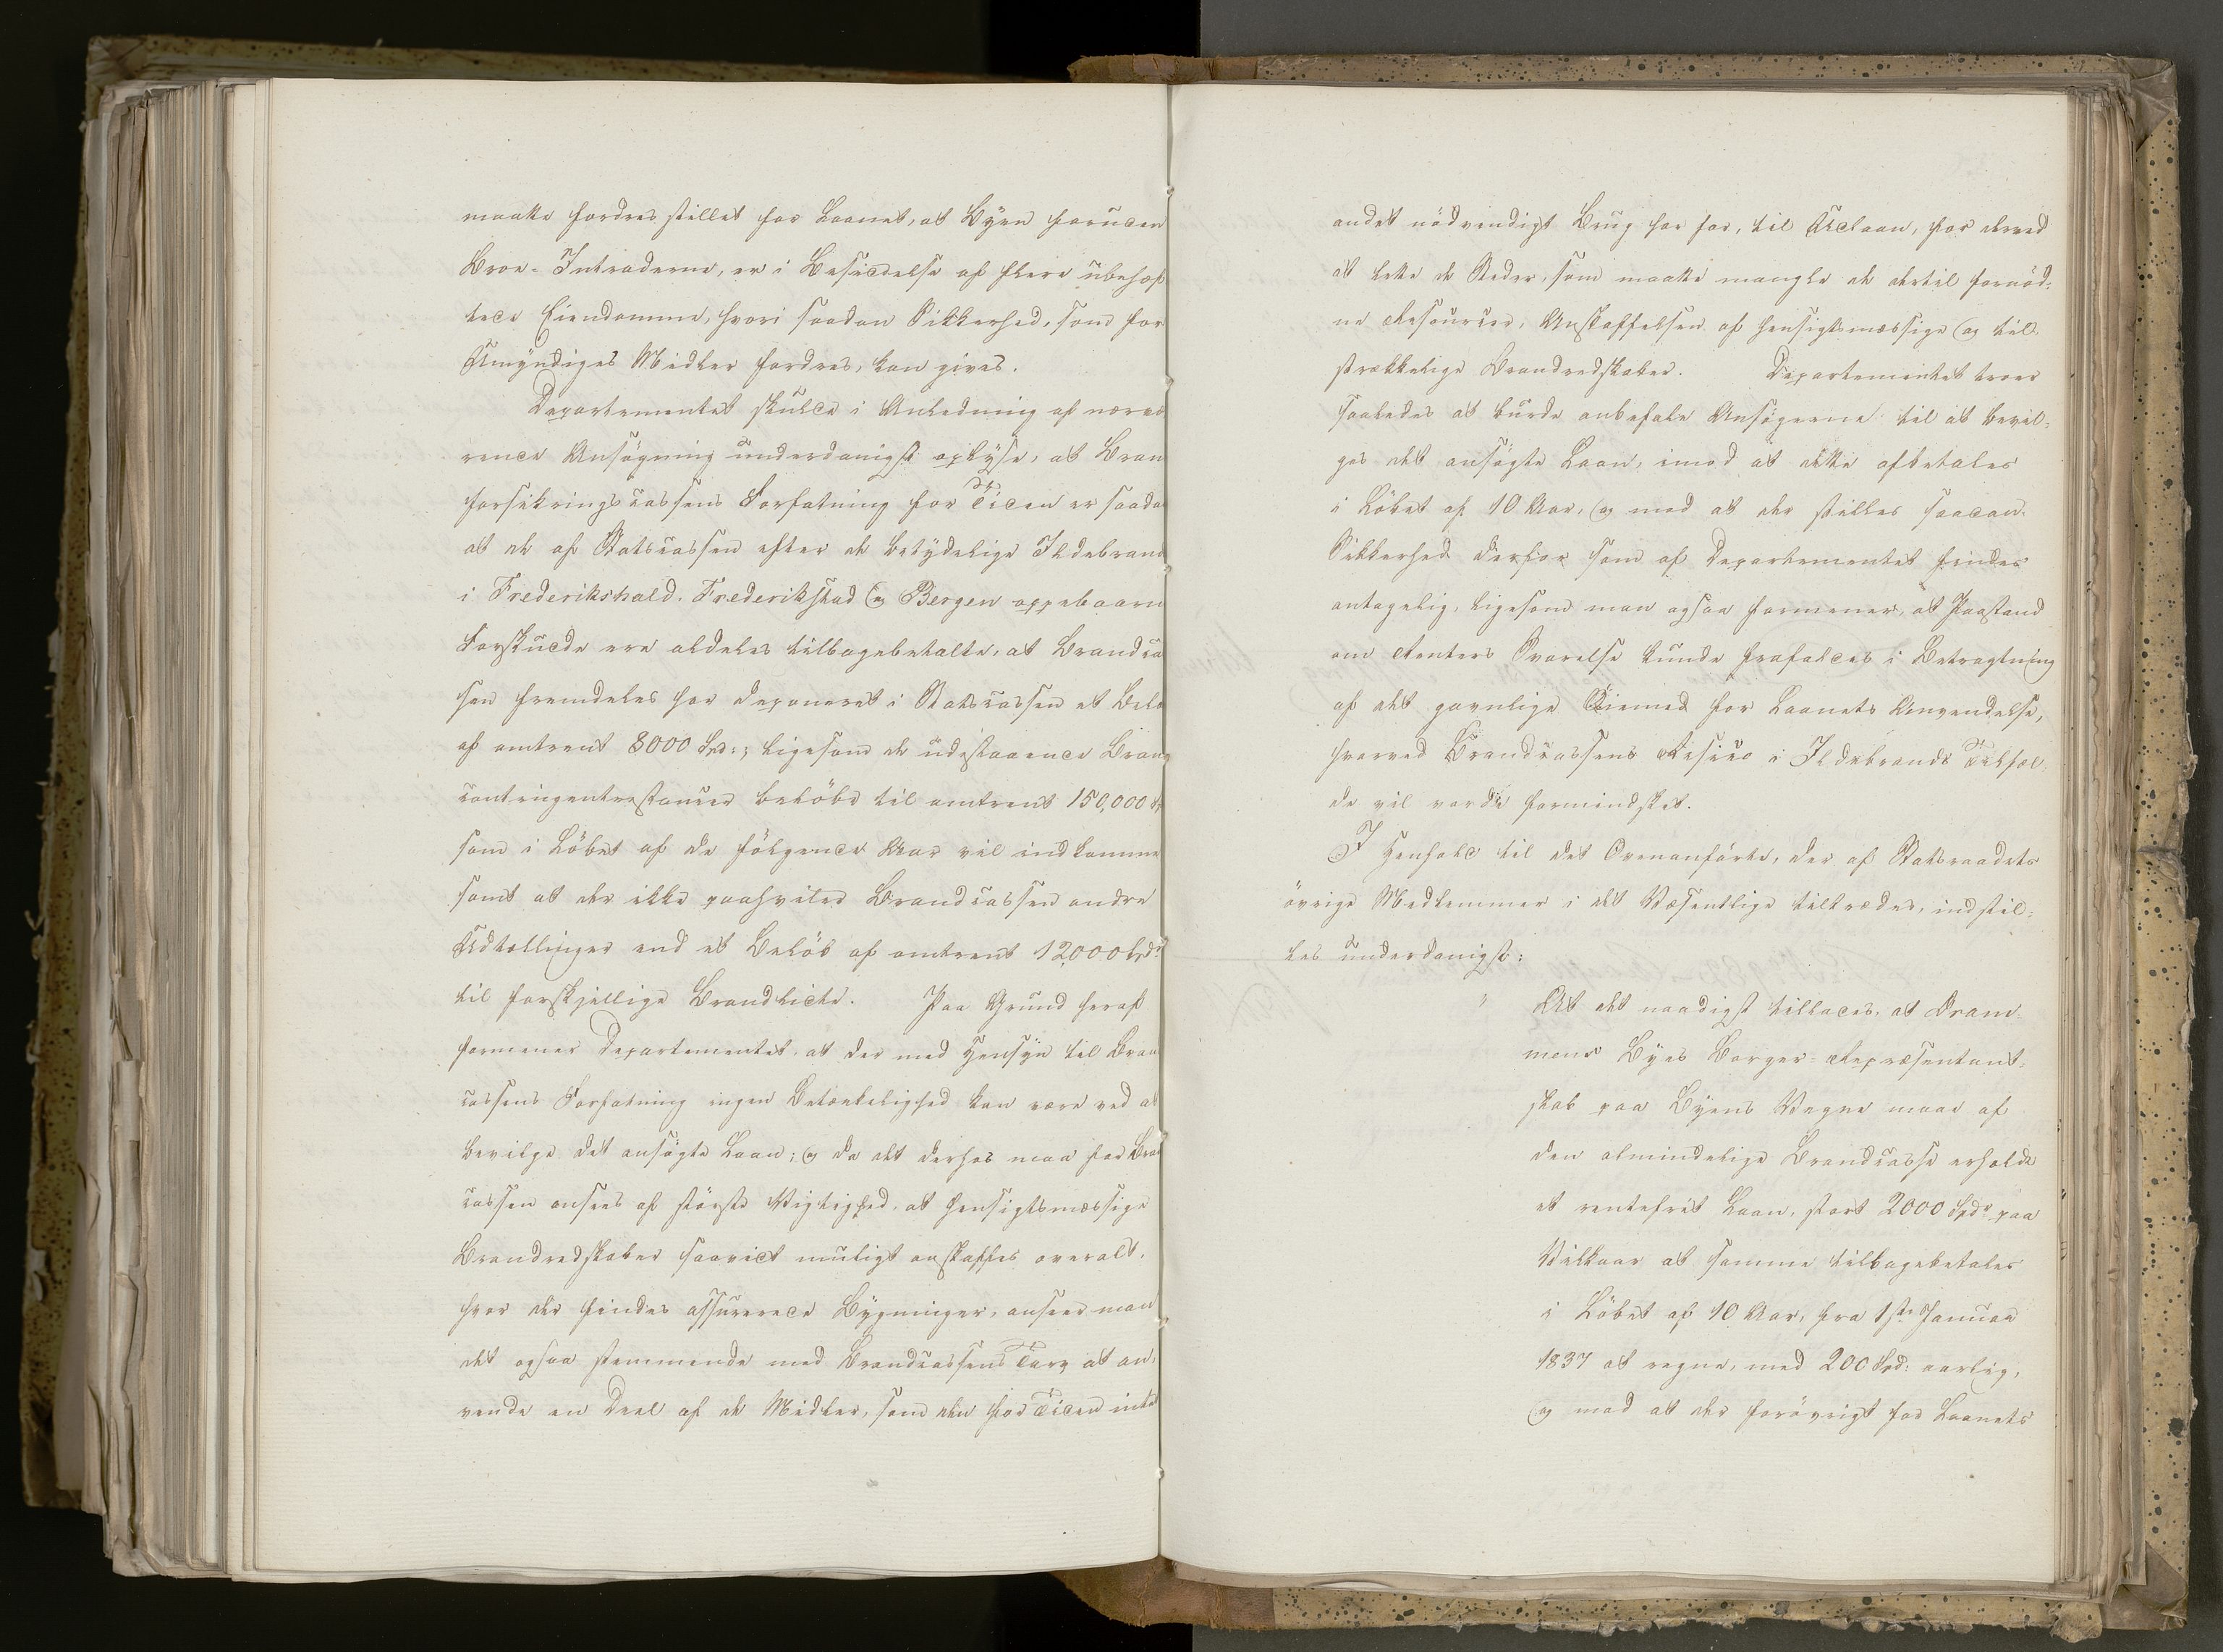 maatte fordres stillet for Laanet, at Byen foruden
Broe-Intraderne, er i Besiddelse af flere ubehæf
tede Eiendomme, hvori saadan Sikkerhed, som for
Umyndiges Midler fordres, kan gives.
Departementet skulde i Anledning af nærvæ
rende Ansøgning underdanigst oplyse, at Bran
forsikringscassens Forfatning for Tiden er saada
at de af Statscassen efter de betydelige Ildebrand
i Frederikshald, Frederikstad og Bergen oppebaarn
Forskudde ere aldeles tilbagebetalte, at Brandca
sen fremdeles har deponeret i Statscassen et Belø
af omtrent 8000 Spd:; ligesom de udestaaende Brand
contingentrestancer beløbe til omtrent 150,000
som i Løbet af de følgende Aar vil indkomme
samt at der ikke paahviler Brandcassen andre
Udtællinger end et Beløb af omtrent 12,000 Spd:
til forskjellige Brandlidte. Paa Grund heraf
formener Departementet, at der med Hensyn til Bran
cassens Forfatning ingen Betænkelighed kan være ved at
bevilge det ansøgte Laan; og da det derhos maa for Bran
cassen ansees af største Vigtighed, at hensigtsmæssige
Brandredskaber saavidt muligt anskaffes overalt,
hvor der findes assurerede Bygninger, anseer man
det ogsaa stemmende med Brandcassens Tarv at an-
vende en Deel af de Midler, som den for Tiden intet
andet nødvendigt Brug har for, til Udlaan, for derved
at lette de Steder, som maatte mangle de dertil fornød-
ne Resourcer, Anskaffelsen af hensigtsmæssige og til-
strækkelige Brandredskaber. Departementet troer
saaledes at burde anbefale Ansøgerne til at bevil-
ges det ansøgte Laan, imod at dette afbetales
i Løbet af 10 Aar, og mod at der stilles saadan
Sikkerhed derfor som af Departementet findes
antagelig, ligesom man ogsaa formener, at Paastand
om Renters Svarelse kunde frafaldes i Betragtning
af det gavnlige Øiemed for Laanets Anvendelse,
hvorved Brandcassens Risico i Ildebrands Tilfæl-
de vil vorde formindsket.
I Henhold til det Ovenanførte, der af Statsraadets
øvrige Medlemmer i det Væsentlige tiltrædes, indstil-
les underdanigst:
At det naadigst tillades, at Dram-
mens Byes Borger-Repræsentant-
skab paa Byens Vegne maae af
den almindelige Brandcasse erholde
et rentefrit Laan, stort 2000 Spdr paa
Vilkaar at samme tilbagebetales
i Løbet af 10 Aar, fra 1ste Januar
1837 at regne, med 200 Spd: aarlig,
og mod at der forøvrigt for Laanets